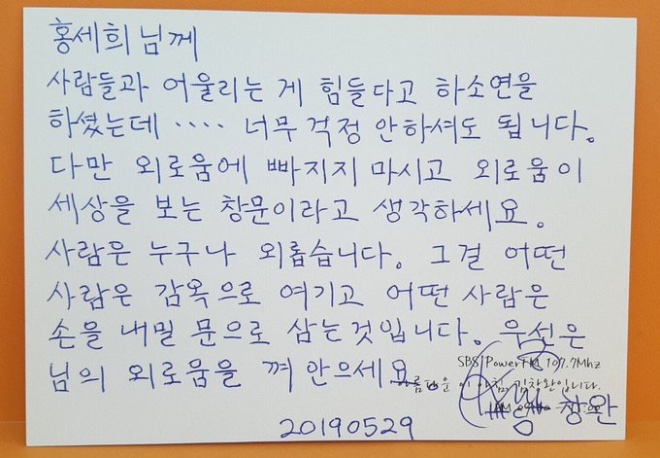 홍세희님께
사람들과 어울리는 게 힘들다고 하소연을
하셨는데 ···· 너무 걱정 안하셔도 됩니다.
다만 외로움에 빠지지 마시고 외로움이
세상을 보는 창문이라고 생각하세요.
사람은 누구나 외롭습니다. 그걸 어떤
사람은 감옥으로 여기고 어떤 사람은
손을 내밀 문으로 삼는것입니다. 우선은
님의 외로움을 껴 안으세요
SBS Power FM 107.7Mhz
아름다운 이 아침 김창완입니다.
창완
20190529